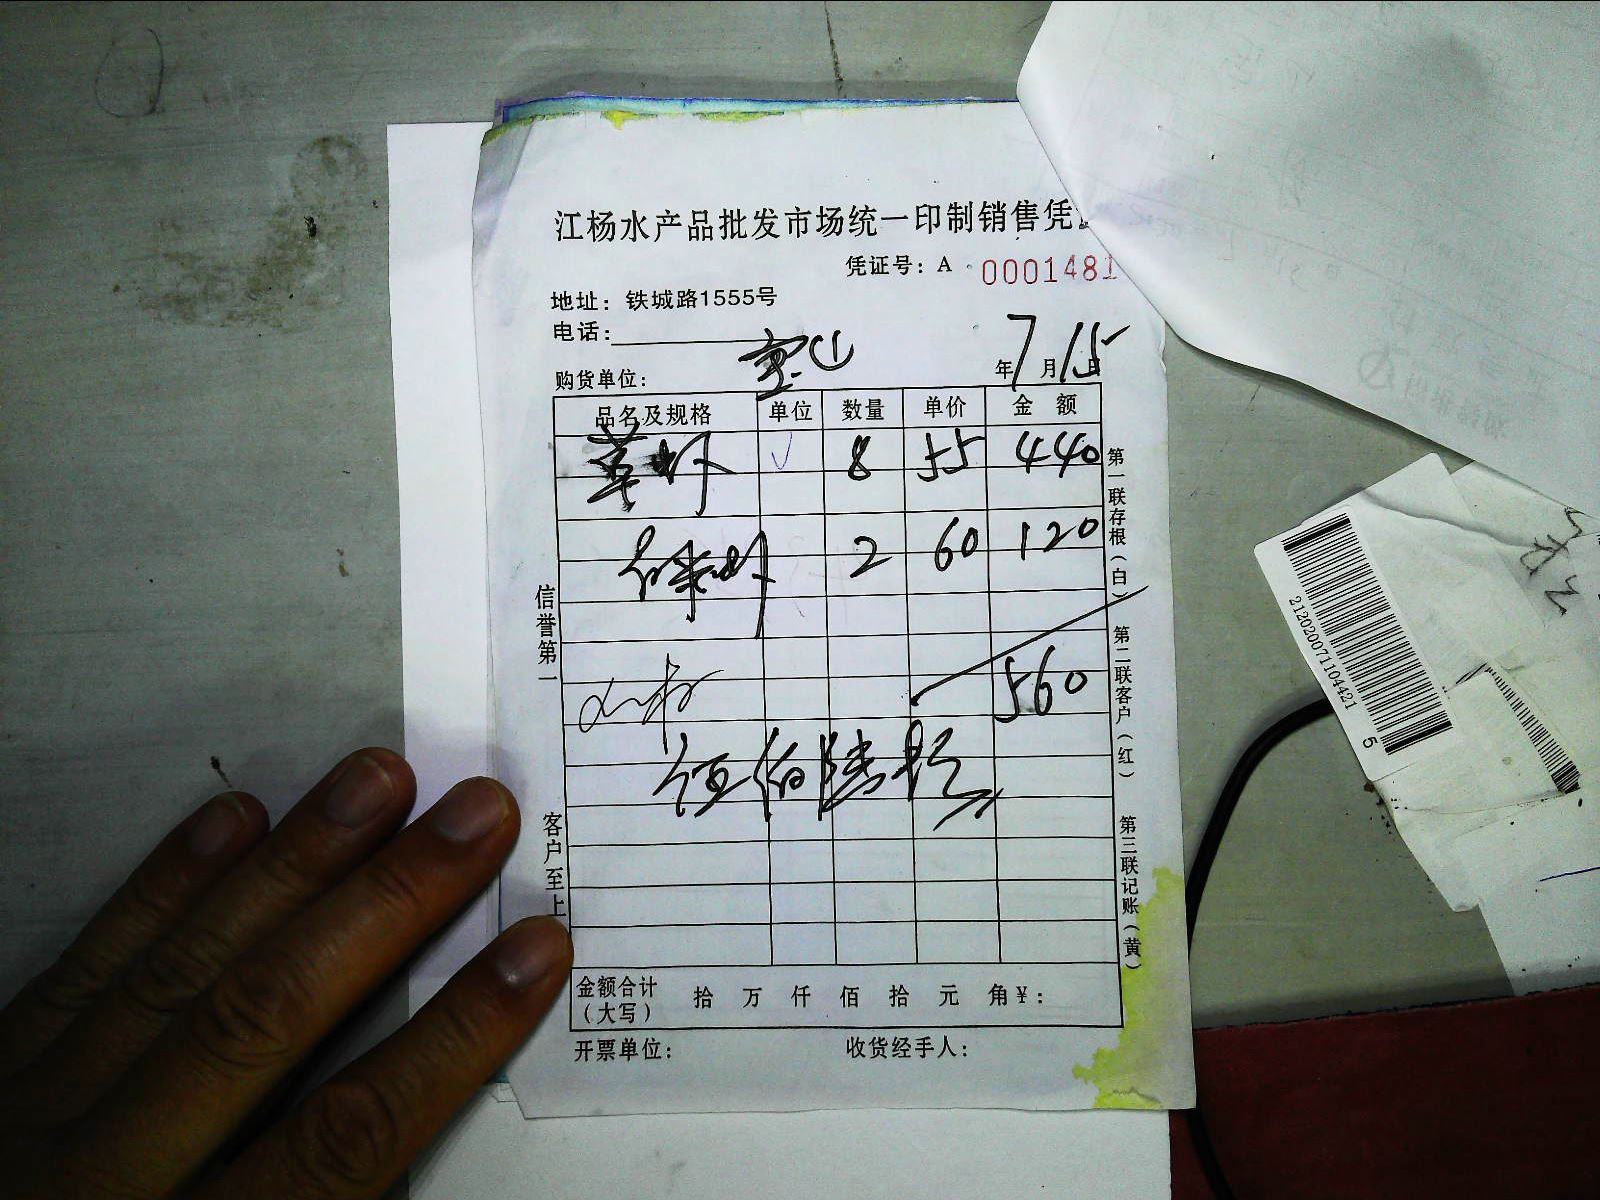 江杨水产品批发市场统一印制销售凭
凭证号：A 0001481
地址：铁城路1555号
电话：
宝山
购货单位： 年7月15日
品名及规格 单位 数量 单价 金额
草虾 √ 8 55 440
虾 2 60 120
560
伍佰陆拾
金额合计（大写） 拾 万 仟 佰 拾 元 角￥：
开票单位： 收货经手人：
信誉第一
客户至上
第一联存根（白） 第二联客户（红） 第三联记账（黄）
2120200711044215